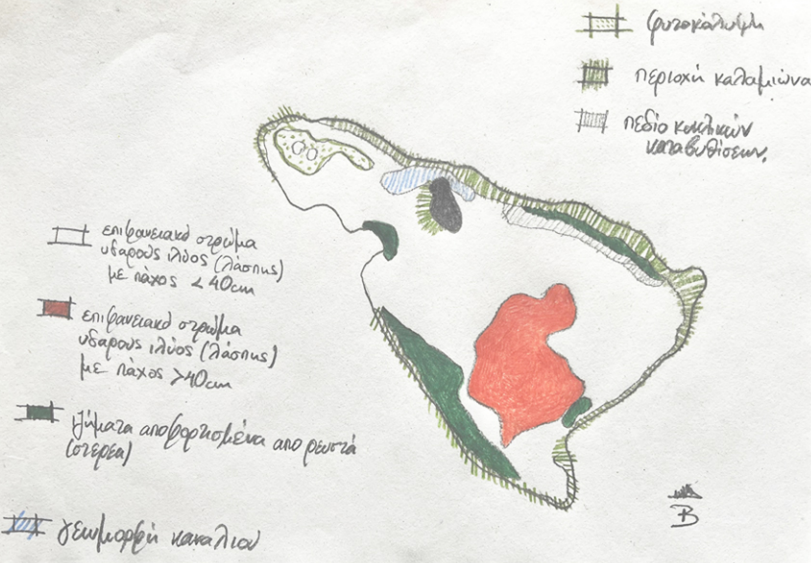 φυτοκάλυψη
περιοχή καλαμιώνα
πεδίο κυκλικών
καταβυθίσεων.
επιφανειακό στρώμα
υδαρούς ιλύος (λάσπης)
με πάχος < 40cm
επιφανειακό στρώμα
υδαρούς ιλύος (λάσπης)
με πάχος >40cm
ιζήματα αποφορτισμένα από ρευστά
(στερεά)
γεωμορφή καναλιού
Β